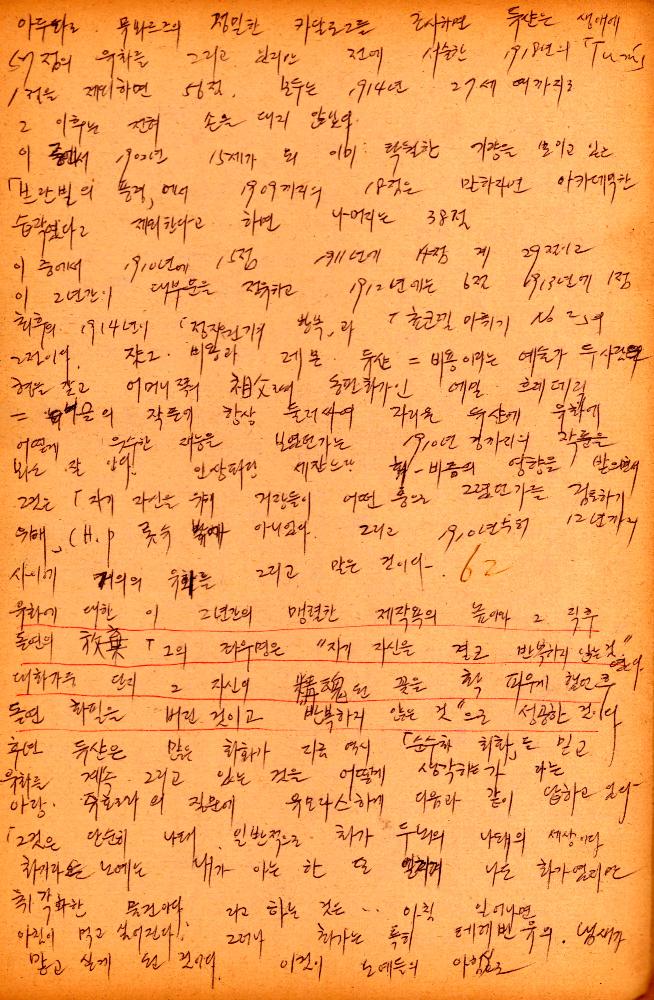 아투로 카달로그를 조사하면 듀샨은 생애에
57점의 유화를 그리고 전에 서술한 1918년의 「Tu m'」
1점을 제외하면 56점. 모두는 1914년 27세 때까지로
그 이후는 전혀 손을 대지 않았다.
이 중에서 1902년 15세가 되 이미 탁월한 기량을 보이고 있는
「브란빌의 풍경」에서 1909까지의 18점은 말하자면 아카데믹한
습작였다고 제외한다고 하면 나머지는 38점
이 중에서 1910년에 15점 1911년에 14점 계 29점이고
이 2년간이 대부분을 점유하고 1912년에는 6점 1913년에 1점
최후의 1914년이 「정자 반복」과 「쵸코렡 마쇄기 No 2」의
2점이다. 쟈크·비용과 레몬·듀샨=비용이라는 예술가 두사람의
형을 갖고 어머니쪽의 祖父로 동판화가인 에밀·흐레데리
=의 작품에 항상 둘러싸여 자라온 듀샨에 유화에
어떻게 우수한 재능을 보였던가는 1910년 경까지의 작품을
보는 잘 안다. 인상파랑 세잔느랑 의 영향을 받으면서
그것은 「자기 자신을 위해 거장들이 어떤 풍으로 그렸던가를 검토하기
위해」(H.P 로슈 아니었다. 그리고 1910년부터 12년까지
사이에 거의의 유화를 그리고 말은 것이다. 62
유화에 대한 이 2년간의 맹렬한 제작욕의 높이와 그 직후
돌연의 放棄 「그의 좌우명은 "자기 자신을 결코 반복하지 않는것"
였다
대화가는 단지 그 자신의 精魂된 꽃을 확 피우게 했던 후
돌연 화필을 버린 것이고 반복하지 않는 것"으로 성공한 것이다
후년 듀샨은 많은 화가가 지금 역시 「순수화 회화」를 믿고
유화를 계속 그리고 있는 것을 어떻게 생각하는가 라는
아랑·쥬흐로와의 질문에 유모라스하게 다음과 같이 답하고 있다-
「그것은 단순히 나태. 일반적으로 화가 두뇌의 나태의 세상이다
화가라는 노예는 내가 아는 한 또 나는 화가였지만
취각화한 물건이다 라고 하는 것은... 아침 일어나면
아침이 먹고 싶어진다. 그러나 화가는 특히 테레빈유의. 냄새가
맡고 싶게 된 것이다. 이것이 노예들의 아침으로